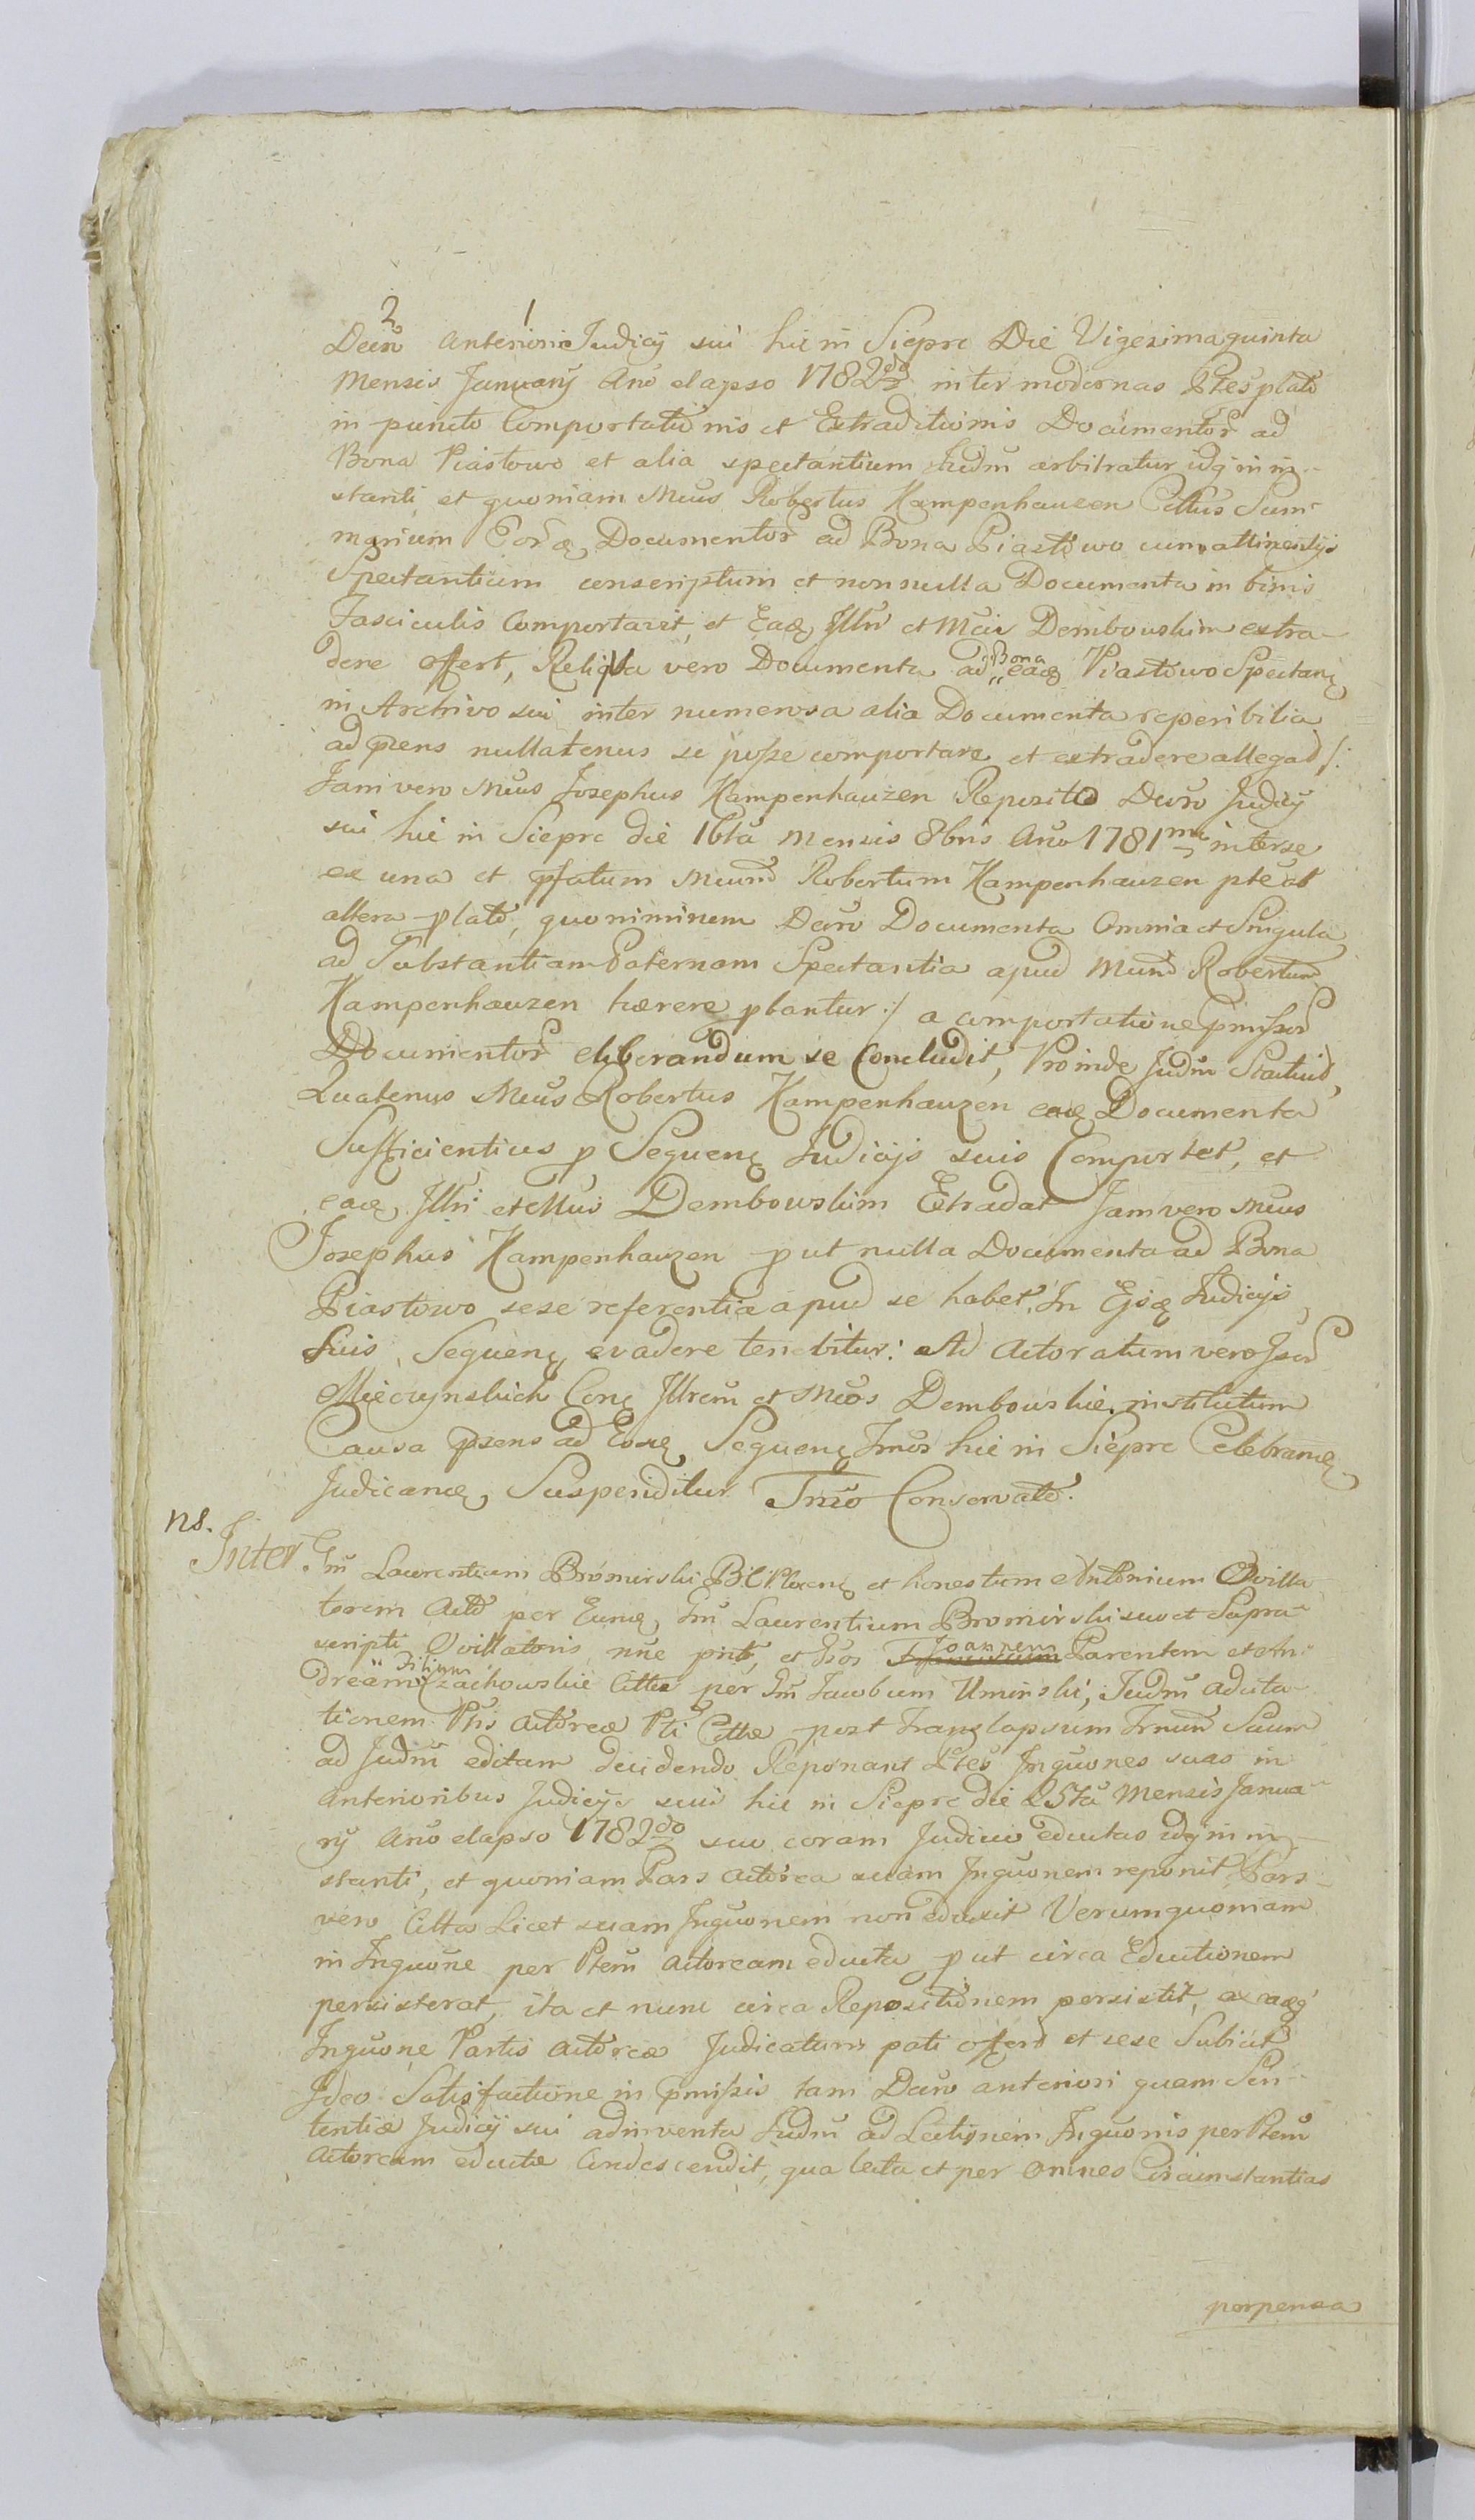 2 1
Decro anteriori Judicij sui hic in Sieprc Die Vigesimaquinta
Mensis January Ano elapso 1782do inter modernas Ptes plato
in puncto Comportationis et Extraditionis Documentor ad
Bona Piastowo et alia spectantium Judm arbitratur idq in in-
stanti, et quoniam Mcus Robertus Kampenhauzen Cittus Sum-
marium Documentor ad Bona Piastowo cum attinentijs
Spectantium conscriptum et nonnulla Documenta in binis
Fasciculis Comportavit, et Ead Jllri et Mcis Dembowskim extra-
dere offert, Reliqua vero Documenta ad Bona ead Piastowo Spectan
in Archivo sui inter numerosa alia Documenta reperibilia
ad pns nullatenus se posse comportare et extradere allegad /:
Jam vero Mcus Josephus Kampenhauzen Reposito Decro Judicij
sui hic in Sieprc die 16ta Mensis 8bris Ano 1781mo inter se
ex una et pfatum Mcum Robertum Kampenhauzen pte ab
altera plato, quoniminem Decro Documenta Omnia et Singula
ad Substantiam Paternam Spectantia apud Mcum Robertum
Kampenhauzen hærere pbantur :/ a comportatione pmissor
Documentor eliberandum se Concludit, Proinde Judm Statuid,
Quatenus Mcus Robertus Kampenhauzen ead Documenta
Sufficientius p Sequen Judicijs suis Comportet, et
ead Jllri et Mcis Dembowskim Extradat Jam vero Mcus
Josephus Kampenhauzen put nulla Documenta ad Bona
Piastowo sese referentia apud se habet, In Judicijs
Suis Sequen evadere tenebitur: Ad Actoratum vero Jsor
Mieczynskich Con Jllrem et Mcos Dembowskie institutum
Causa pns ad Eosd Sequen Trnos hic in Sieprc Celebran
Judican Suspenditur Trno Conservato.
ns.
Inter Gm Laurentium Bromirski B C Plocen et honestum Antonium Ovilla
torem Acto per Eund Gm Laurentium Bromirski suo et Supra-
scripti Ovillatoris nne pntb, et Gsos Joannem Parentem et An-
dream Filium Czachowskie Cittos per Gm Jacobum Uminski, Judm ad cita-
tionem Ptis Actoreæ Pti Cittæ post Translapsum Trnum Suum
ad Judm editam decidendo Reponant Ptes Inquones suas in
anterioribus Judicijs suis hic in Sieprc die 25ta Mensis Janua-
ry Ano elapso 1782do suo coram Judicio eductas idq in in-
stanti, et quoniam Pars Actorea suam Inquonem reponit, Pars
vero Citta Licet suam Inquonem non eduxit Verum quoniam
in Inquone per Ptem Actoream educta put circa Eductionem
perstiterat, ita et nunc circa Repositionem persistit, ex eaq
Inquone Partis Actoreæ Judicatum pati offert et sese Subicit
Ideo Satisfactione in pmissis tam Decro anteriori quam Sen-
tentiæ Judicij sui adinventa Judm ad Lectionem Inquonis per Ptem
Actoream eductæ Condescendit, qua lecta et per omnes Circumstantias
perpensa